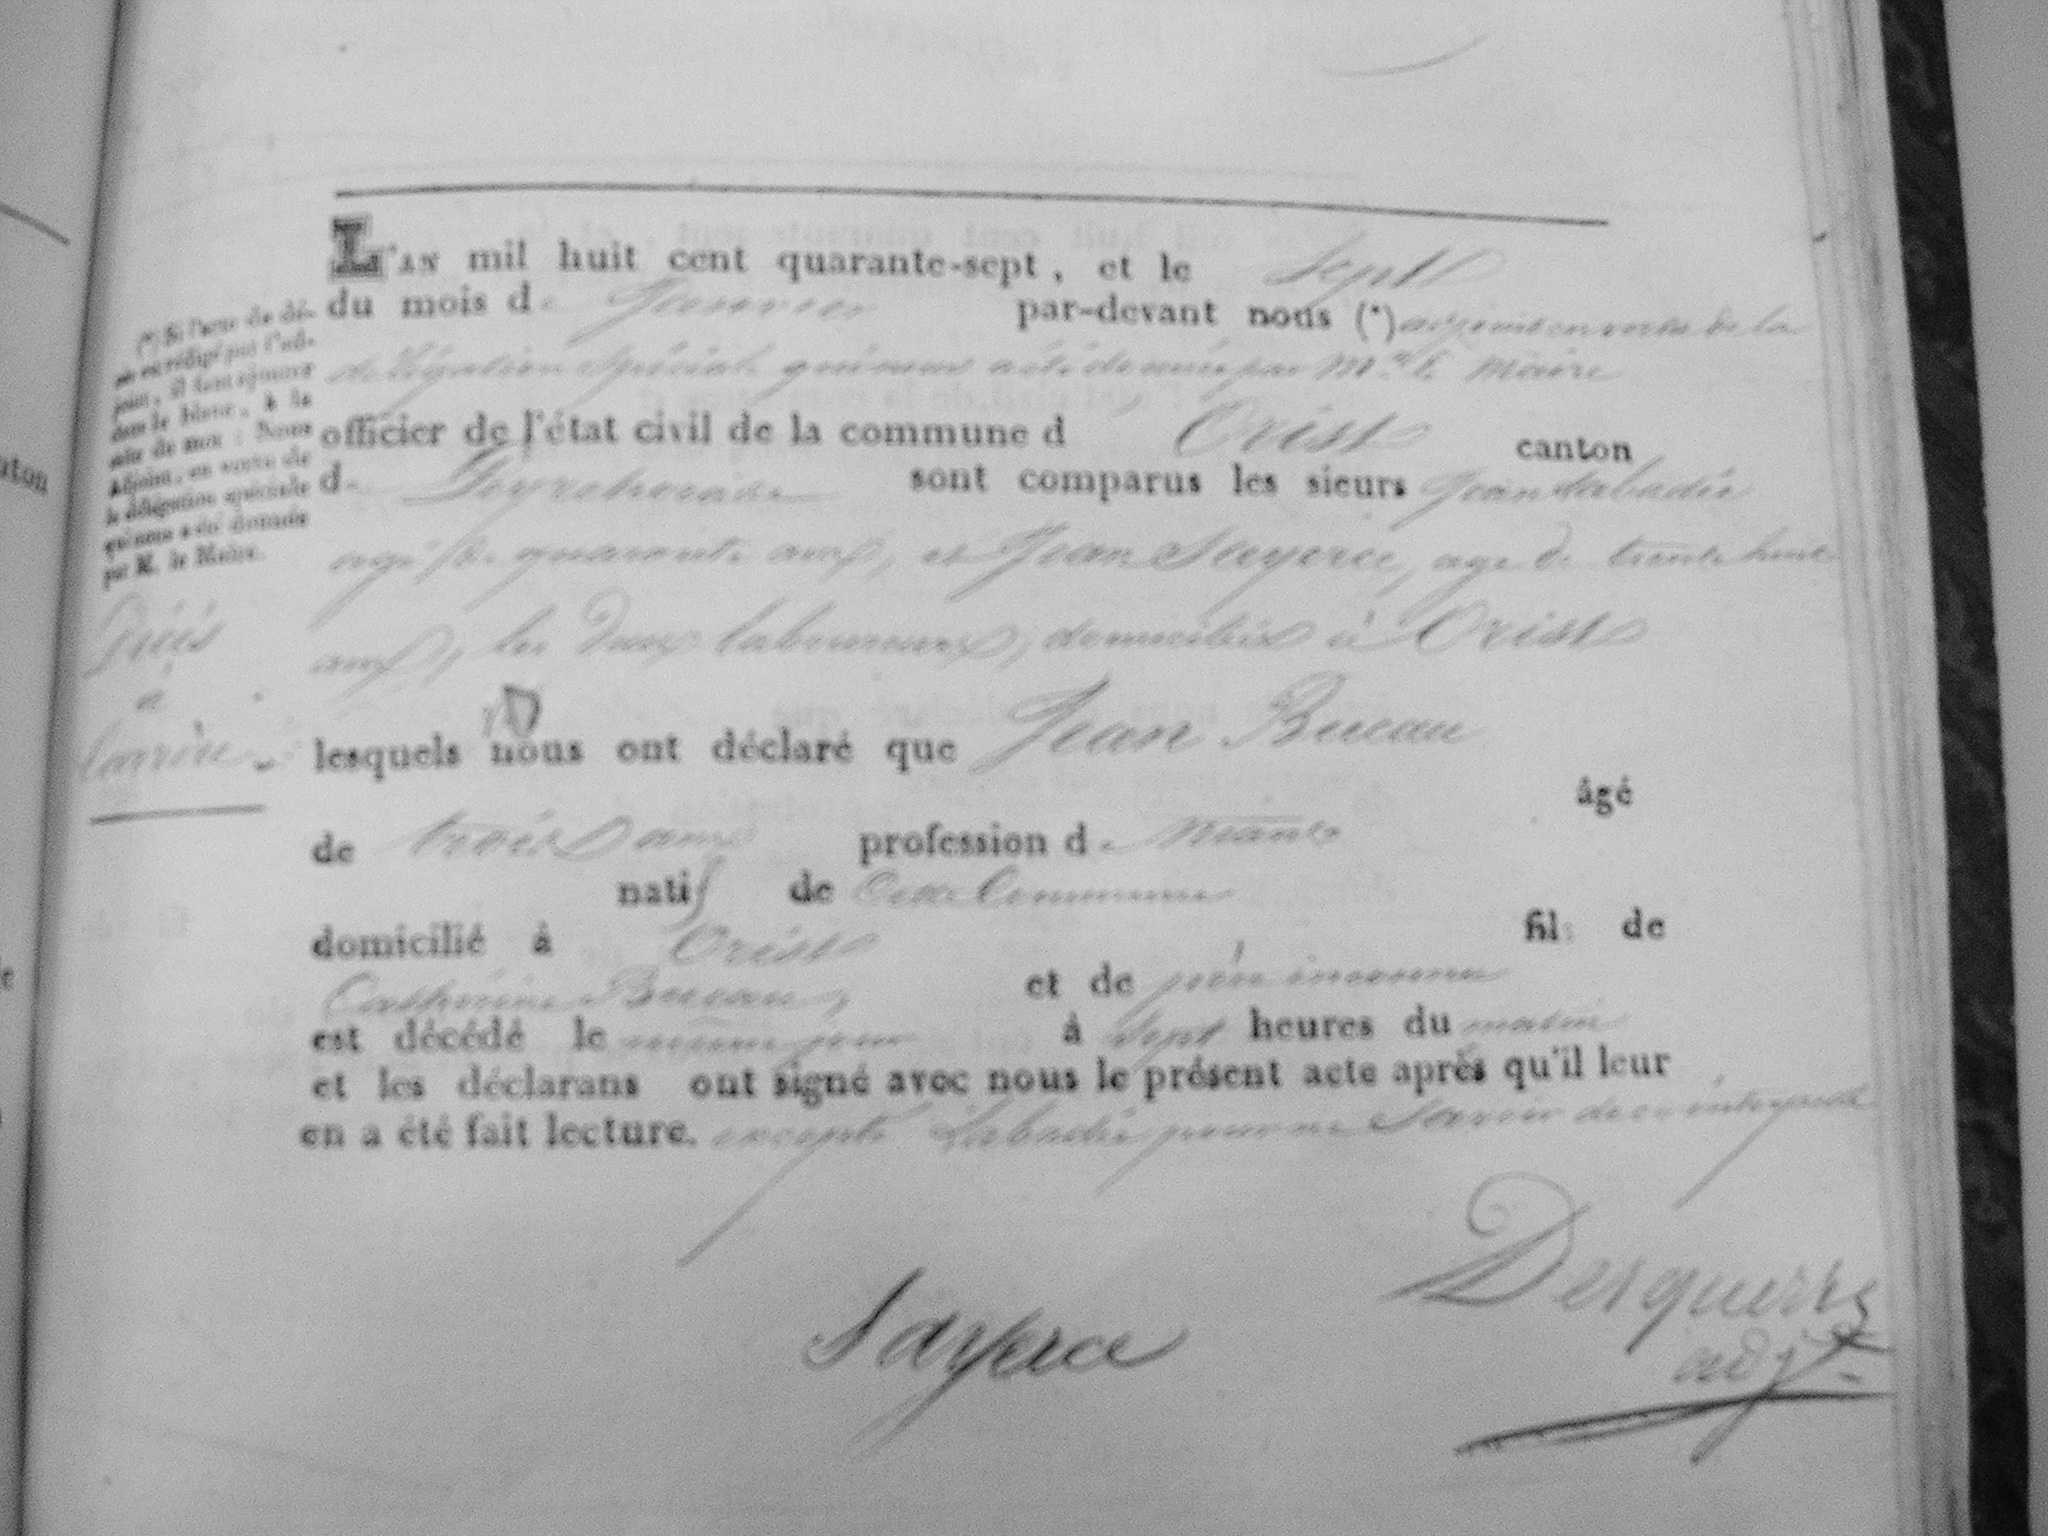 L'AN mil huit cent quarante-sept, et le sept
du mois de Janvier par-devant nous (*) adjoint en vertu de la
délégation spéciale qui nous a été donnée par Mr. le Maire
officier de l'état civil de la commune d'Orist canton
de Peyrehorade sont comparus les sieurs Jean Labadie
agé de quarante ans, et Jean Sayerce, age de trente huit
ans, les deux laboureurs, domiciliés à Orist
lesquels nous ont déclaré que Jean Bucau
âgé
de trois ans profession de néant
natif de cette Commune
domicilié à Orist fils de
Catherine Bucau, et de père inconnu
est décédé le même jour à sept heures du matin
et les déclarans ont signé avec nous le présent acte après qu'il leur
en a été fait lecture. excepté Labadie pour ne savoir de ce interpellé
Sayerce
Desquerre
adjt
(*) Si l'acte de dé-
cès est rédigé par l'ad-
joint, il faut ajouter
dans le blanc, à la
suite du mot : Nous
Adjoint, en vertu de
la délégation spéciale
qui nous a été donnée
par M. le Maire.
Décès
à